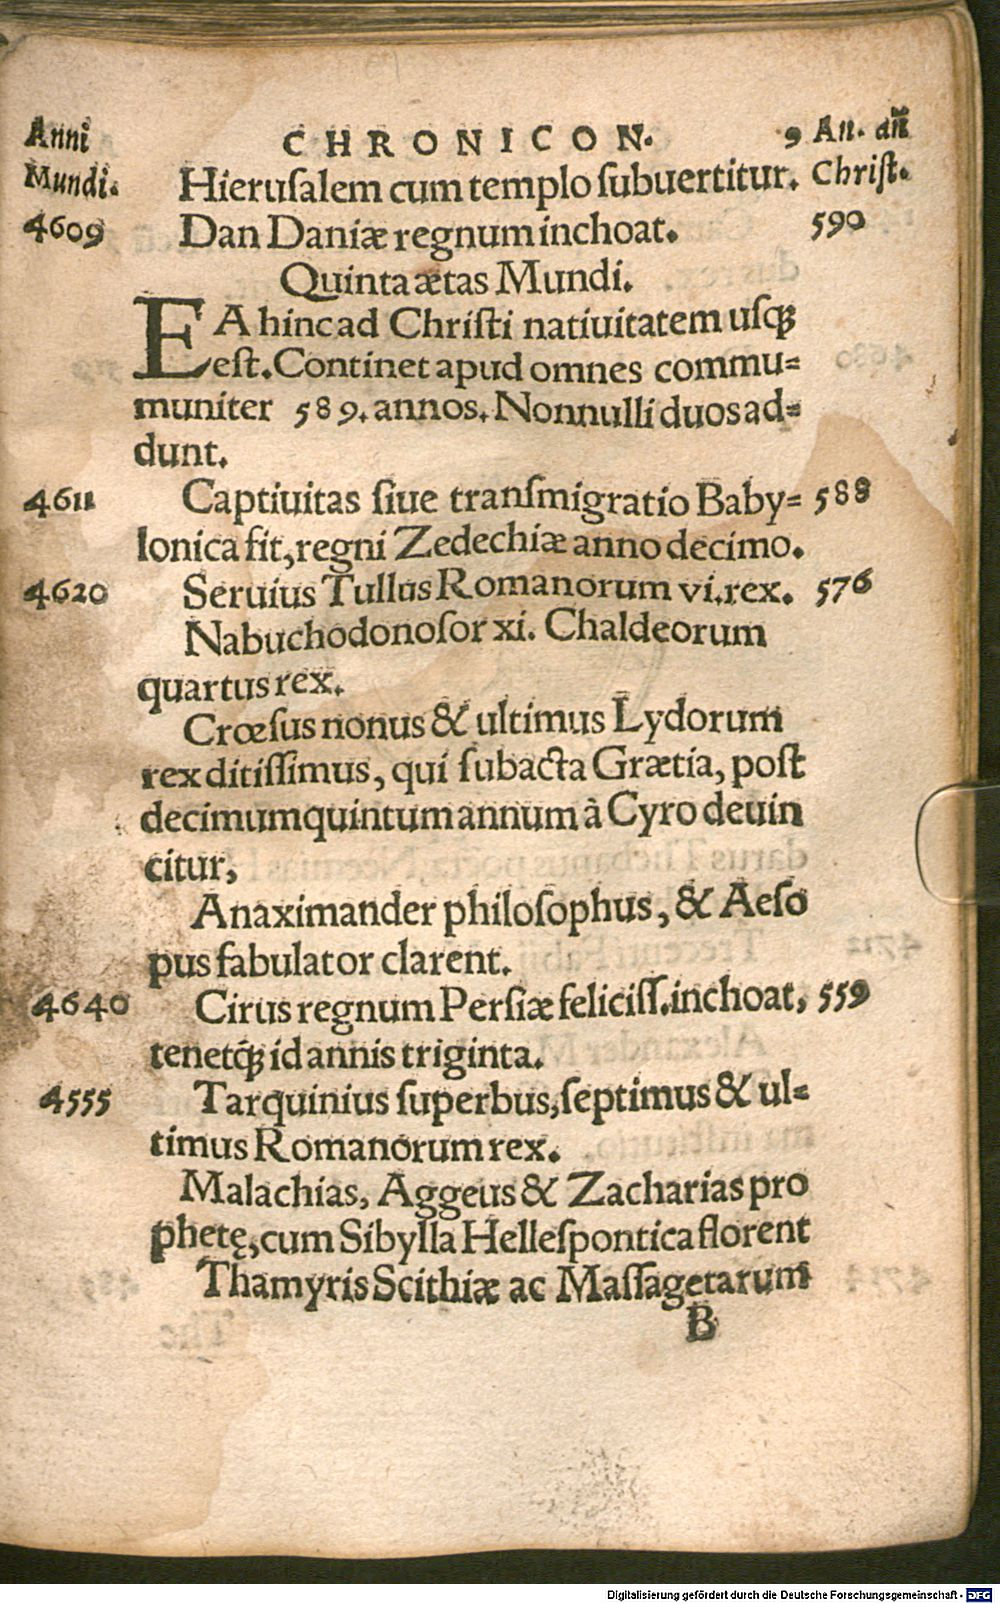 Anni CHRONICON. 9 An. dñi
Mundi. Hieruſalem cum templo ſubuertitur. Chriſt.
4609 Dan Daniæ regnum inchoat. 590
Quinta ætas Mundi.
EA hinc ad Chriſti natiuitatem uſq;
eſt. Continet apud omnes commu=
muniter 589. annos. Nonnulli duos ad=
dunt.
4611 Captiuitas ſiue tranſmigratio Baby= 588
lonica fit, regni Zedechiæ anno decimo.
4620 Seruius Tullus Romanorum vi. rex. 576
Nabuchodonoſor xi. Chaldeorum
quartus rex.
Crœſus nonus & ultimus Lydorum
rex ditiſſimus, qui ſubacta Grætia, poſt
decimumquintum annum à Cyro deuin
citur,
Anaximander philoſophus, & Aeſo
pus fabulator clarent.
4640 Cirus regnum Perſiæ feliciſſ. inchoat, 559
tenetq́; id annis triginta.
4555 Tarquinius ſuperbus, ſeptimus & ul=
timus Romanorum rex.
Malachias, Aggeus & Zacharias pro
phetę, cum Sibylla Helleſpontica florent
Thamyris Scithiæ ac Maſſagetarum
B
Digitalisierung gefördert durch die Deutsche Forschungsgemeinschaft - DFG